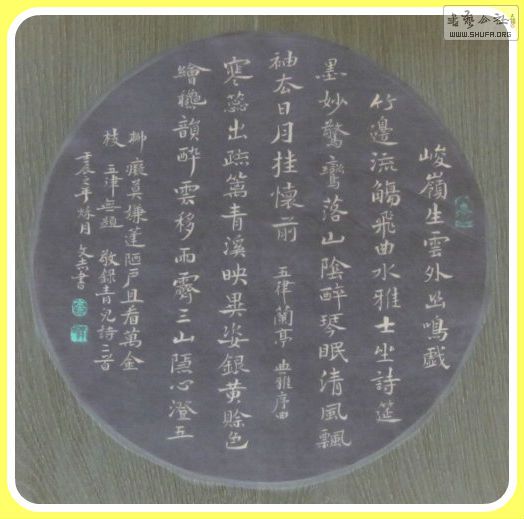 书艺公社
WWW.SHUFA.ORG
峻嶺生雲外鳴戲
竹邊流觴飛曲水雅士坐詩筵
墨妙驚鸞落山陰醉琴眠清風飄
袖去日月挂懷前 五律蘭亭 典雅序曲
寒蕊出疏篱青溪映異姿銀黃賒色
繪韻醉雲移雨霽三山隱心澄五
柳癡莫嫌蓬陋戶且看萬金
枝 五律無題 敬錄青兒詩二首
壬辰之年秋月 文吉書